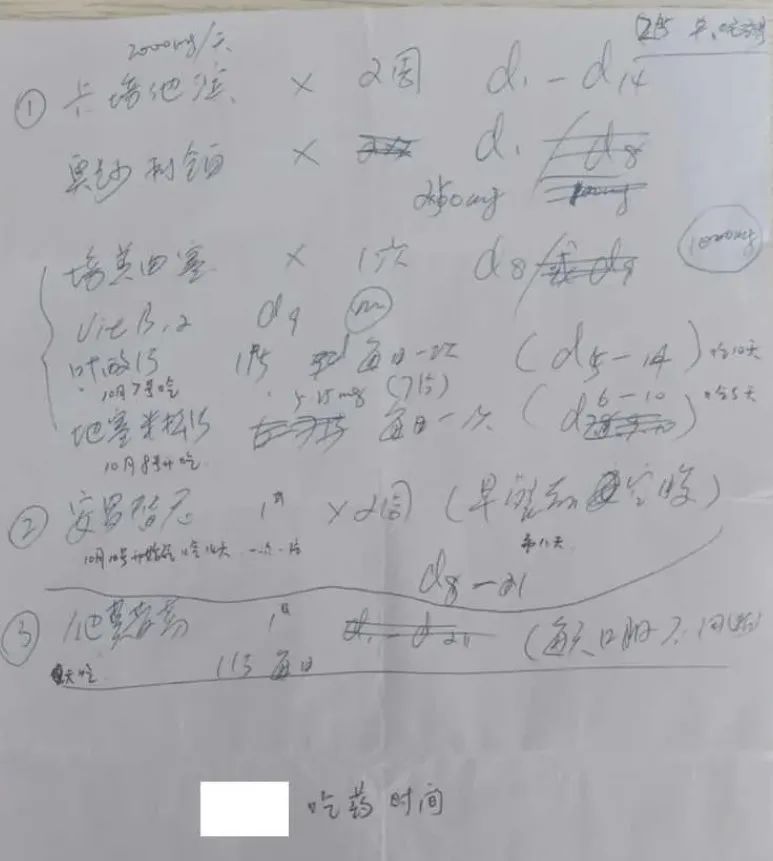 2000mg/天
① 卡培他滨 × 2周 d1-d14
奥沙利铂 × d1
250mg
1000mg
培美曲塞 × 1次 d8
VitB12 d9 im
叶酸片 1片 每日一次 (d5-14) 吃10天
10月7号吃 5.25mg (7片)
地塞米松片 每日一次 (d6-10) 吃5天
10月8号开吃
② 安罗替尼 1# ×2周 (早饭前空腹)
10月10号开始吃 吃14天 一次一片
d8-21
③ 1# (每天口服不间断)
天吃 1片 每日
吃药时间